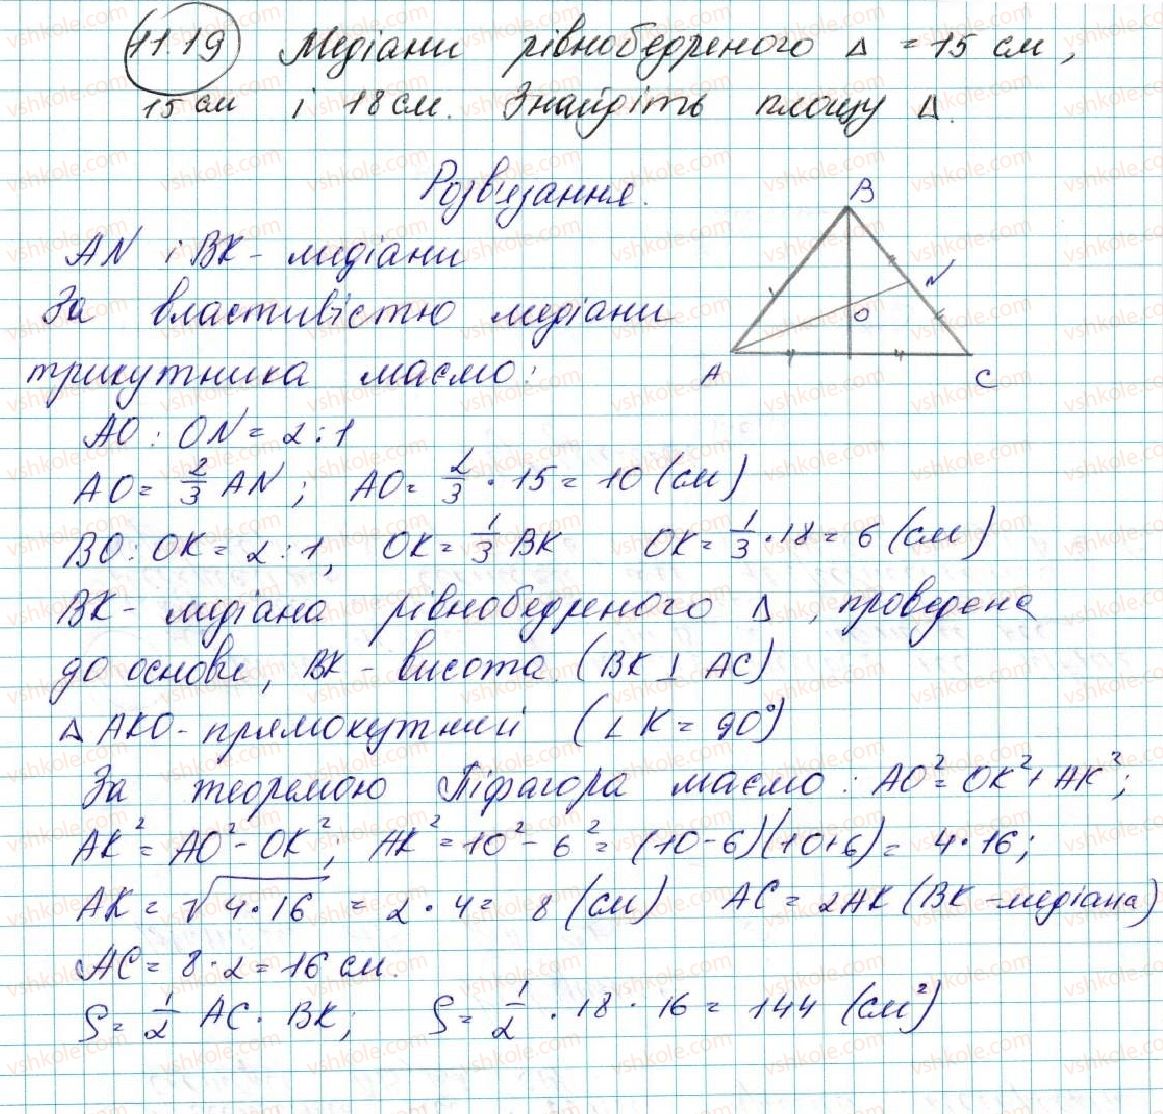 11.19 Медіани рівнобедреного Δ = 15 см,
15 см і 18 см. Знайдіть площу Δ.
Розв'язання.
AN і BK - медіани
За властивістю медіани
трикутника маємо:
AO : ON = 2 : 1
AO = 2/3 AN ; AO = 2/3 · 15 = 10 (см)
BO : OK = 2 : 1, OK = 1/3 BK OK = 1/3 · 18 = 6 (см)
BK - медіана рівнобедреного Δ, проведена
до основи, BK - висота. (BK ⊥ AC)
Δ AKO - прямокутний (∠ K = 90°)
За теоремою Піфагора маємо : AO² = OK² + AK²;
AK² = AO² - OK²; AK² = 10² - 6² = (10-6)(10+6) = 4·16;
AK = √4·16 = 2 · 4 = 8 (см) AC = 2AK (BK - медіана)
AC = 8 · 2 = 16 см.
S = 1/2 AC · BK; S = 1/2 · 18 · 16 = 144 (см²)
B
N
O
A
C
vshkole.com